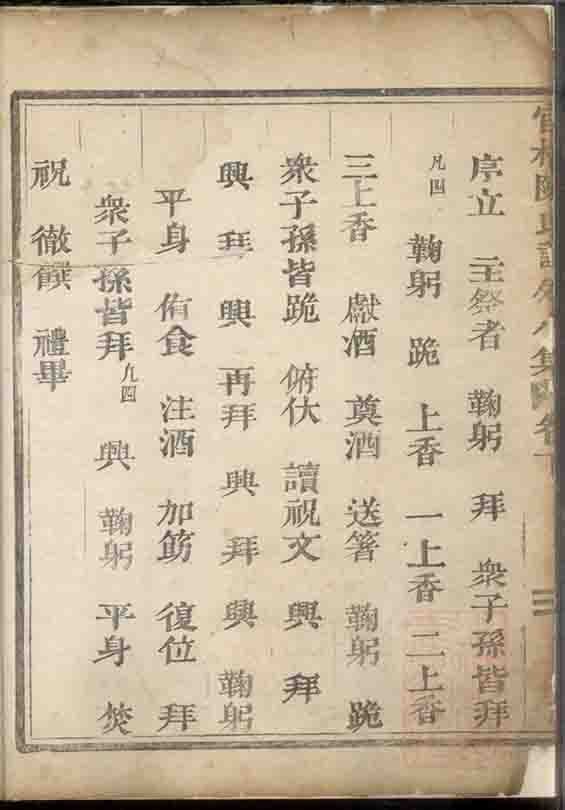 序立 主祭者 鞠躬 拜 衆子孫皆拜
凡四 鞠躬 跪 上香 一上香 二上香
三上香 獻酒 奠酒 送箸 鞠躬 跪
衆子孫皆跪 俯伏 讀祝文 興 拜
興 拜 興 再拜 興 拜 興 鞠躬
平身 侑食 注酒 加筯 復位 拜
衆子孫皆拜 凡四 興 鞠躬 平身 焚
祝 徹饌 禮畢